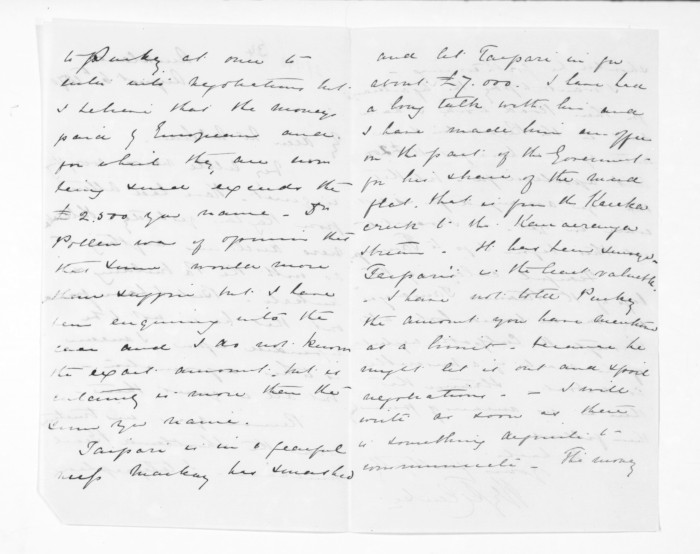 to Puckey at once to
enter into negotiations but
I believe that the money
paid by Europeans and
for which they are now
being sued exceeds the
£2.500 you name - Dr
Pollen was of opinion that
that sum would more
than suffice but I have
been enquiring into the
case and I do not know
the exact amount but it
certainly is more than the
sum you name.
Taipari is in a fearful
mess Mackay has smashed
and let Taipari in for
about £7.000. I have had
a long talk with him and
I have made him an offer
on the part of the Government
for his share of the mud
flat. that is from the
creek to the Kauaeranga
stream - It has been surveyed
Taipari's is the least valuable
- I have not told Puckey
the amount you have mentioned
as a limit - because he
might let it out and spoil
negotiations - - I will
write as soon as there
is something definite to
communicate - The money